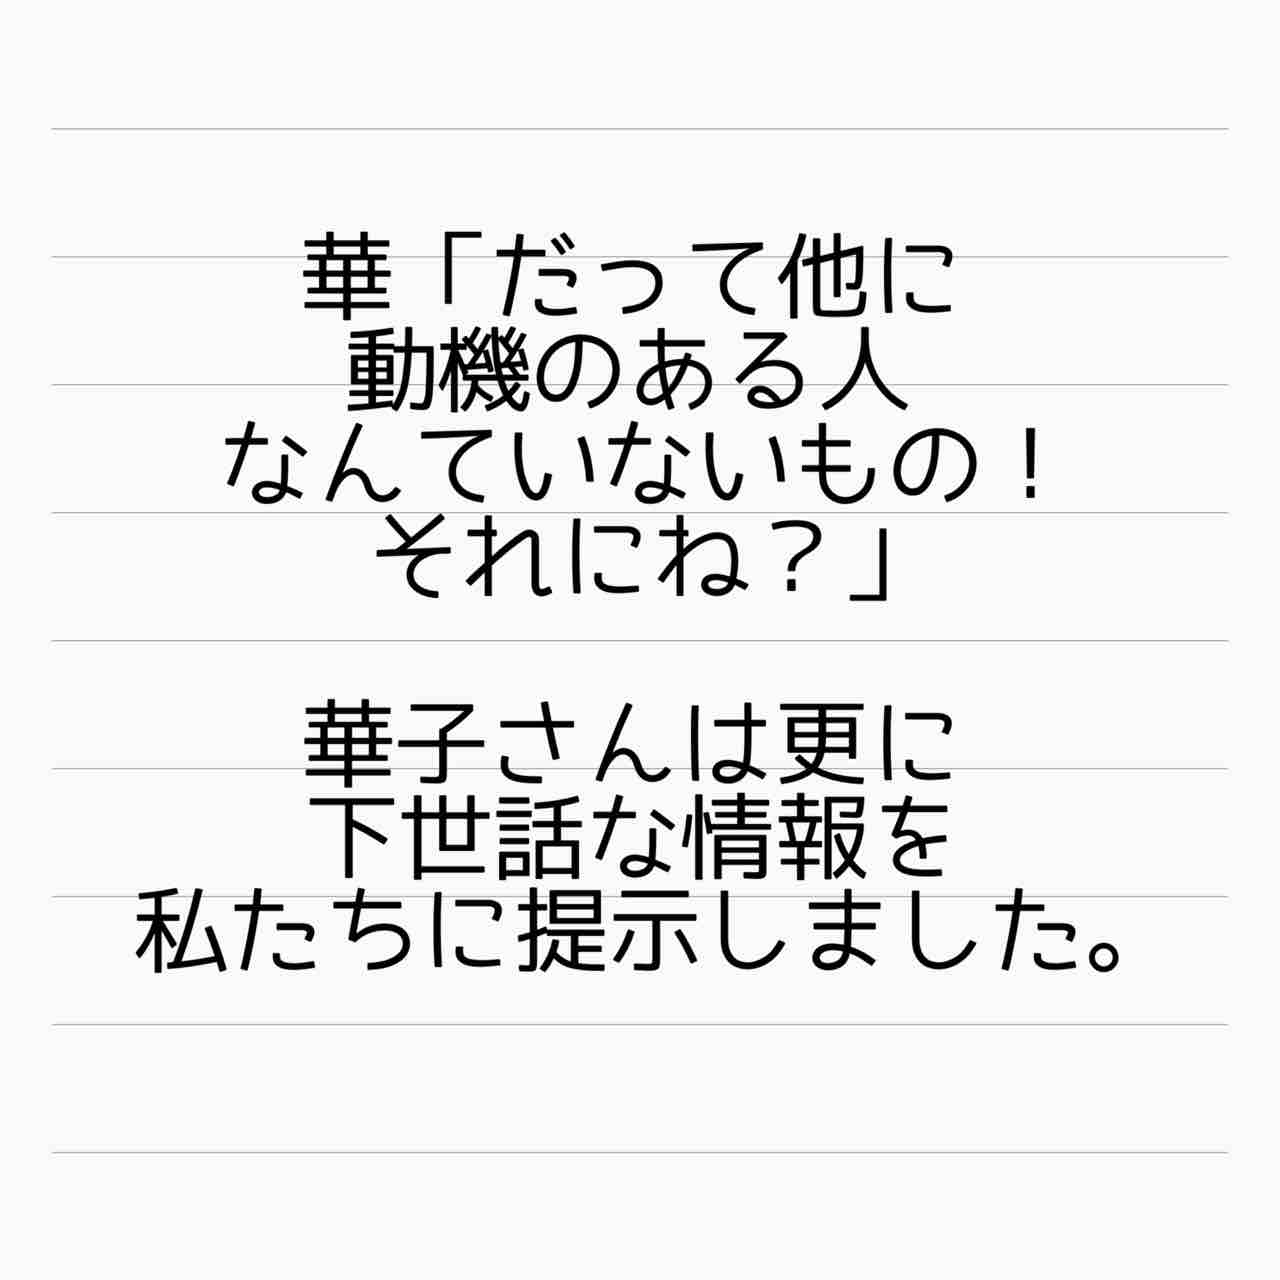 華「だって他に
動機のある人
なんていないもの！
それにね？」
華子さんは更に
下世話な情報を
私たちに提示しました。